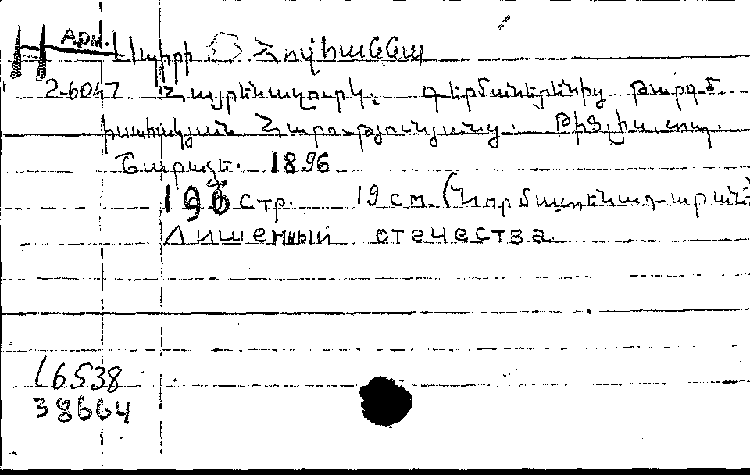 Арм. Սպիրի Հովհաննա
2-6047 Հայրենազուրկ. գերմաներենից թարգմ.
Հարությունյանց. Թիֆլիս, տպ.
Շարաձե. 1896
196 стр. 19 см.
Лишенный отечества.
L6538
38664